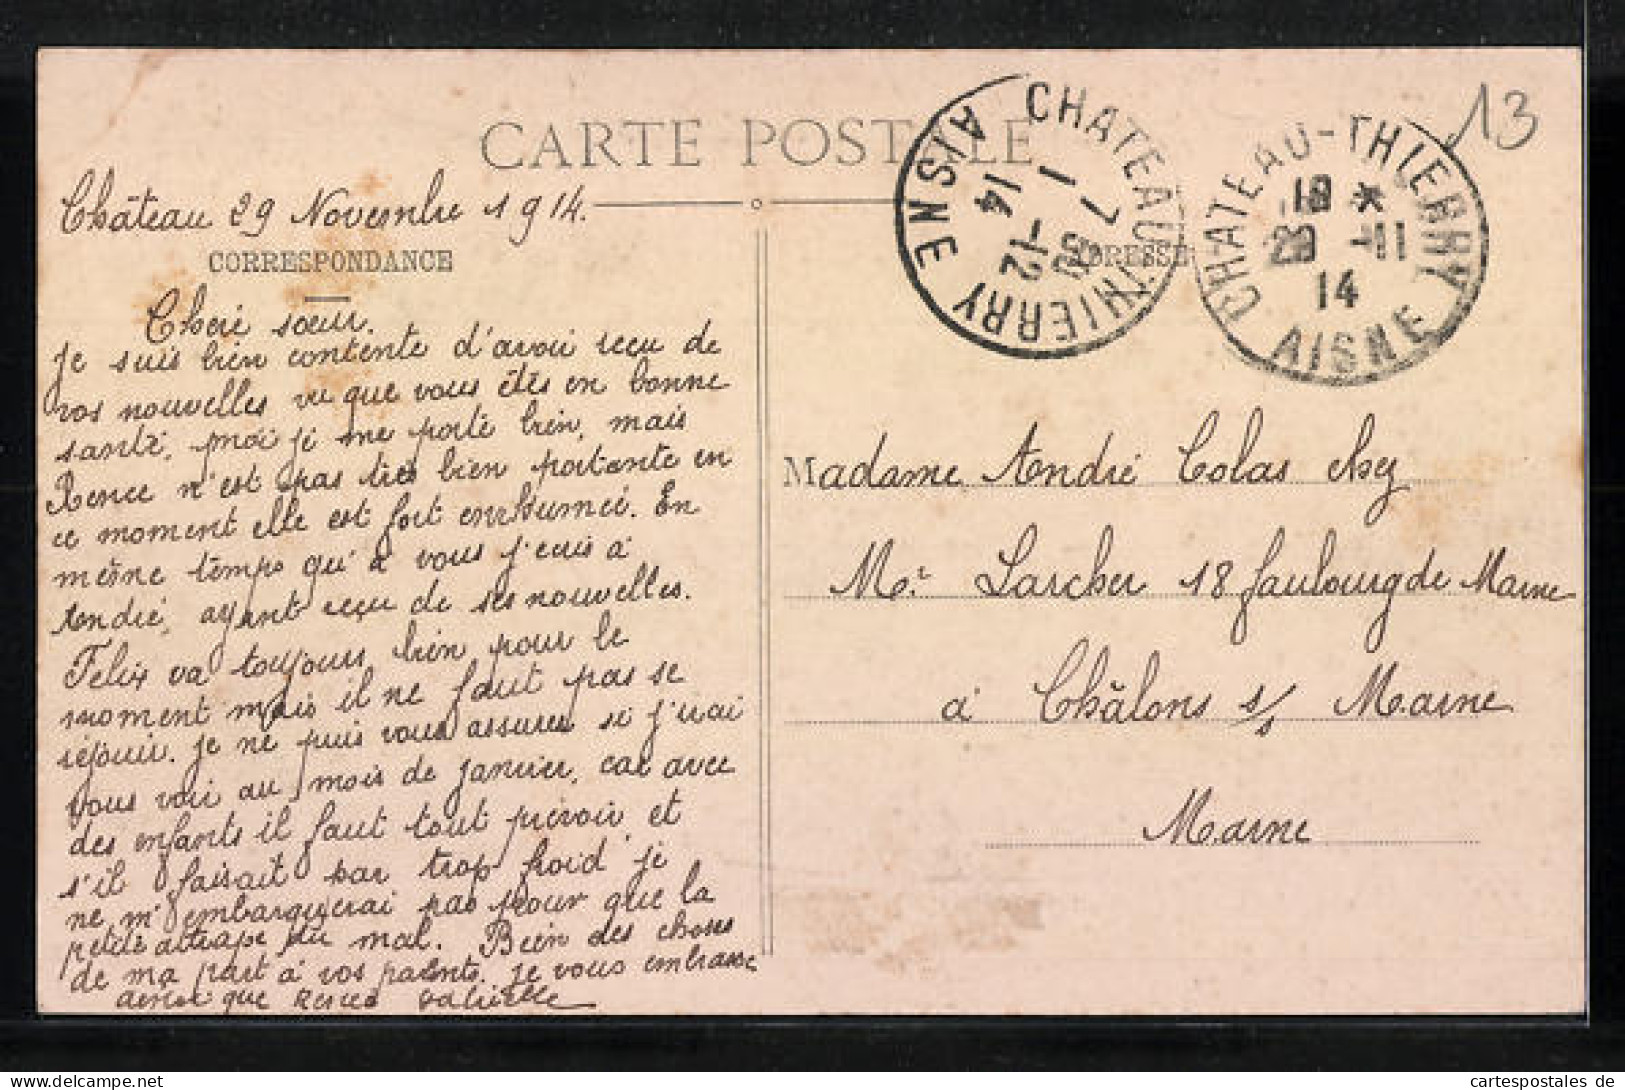 CARTE POSTALE
13
CHATEAU-THIERRY
AISNE
1 7 50
1-12
14
CHATEAU-THIERRY
18 *
29 -11
14
AISNE
Château 29 Novembre 1914.
CORRESPONDANCE
ADRESSE
Cheré sœur.
Je suis bien contente d'avoir reçu de
vos nouvelles vu que vous étés en bonne
santé, moi je me porte bien, mais
Renée n'est pas très bien portante en
ce moment elle est fort enrhumée. En
même temps qu'à vous j'ecris à
André, ayant reçu de ses nouvelles.
Felix va toujours bien pour le
moment mais il ne faut pas se
réjouir. Je ne puis vous assurer si j'irai
vous voir au mois de janvier, car avec
des enfants il faut tout prévoir et
s'il faisait par trop froid je
ne m'embarquerai pas pour que la
petite attrape du mal. Bien des choses
de ma part à vos parents. Je vous embrasse
ainsi que Renée
Madame André Colas chez
Mr Larcher 18 faubourg de Marne
à Châlons s/s Marne
Marne
www.cartespostales.de
cartespostales de